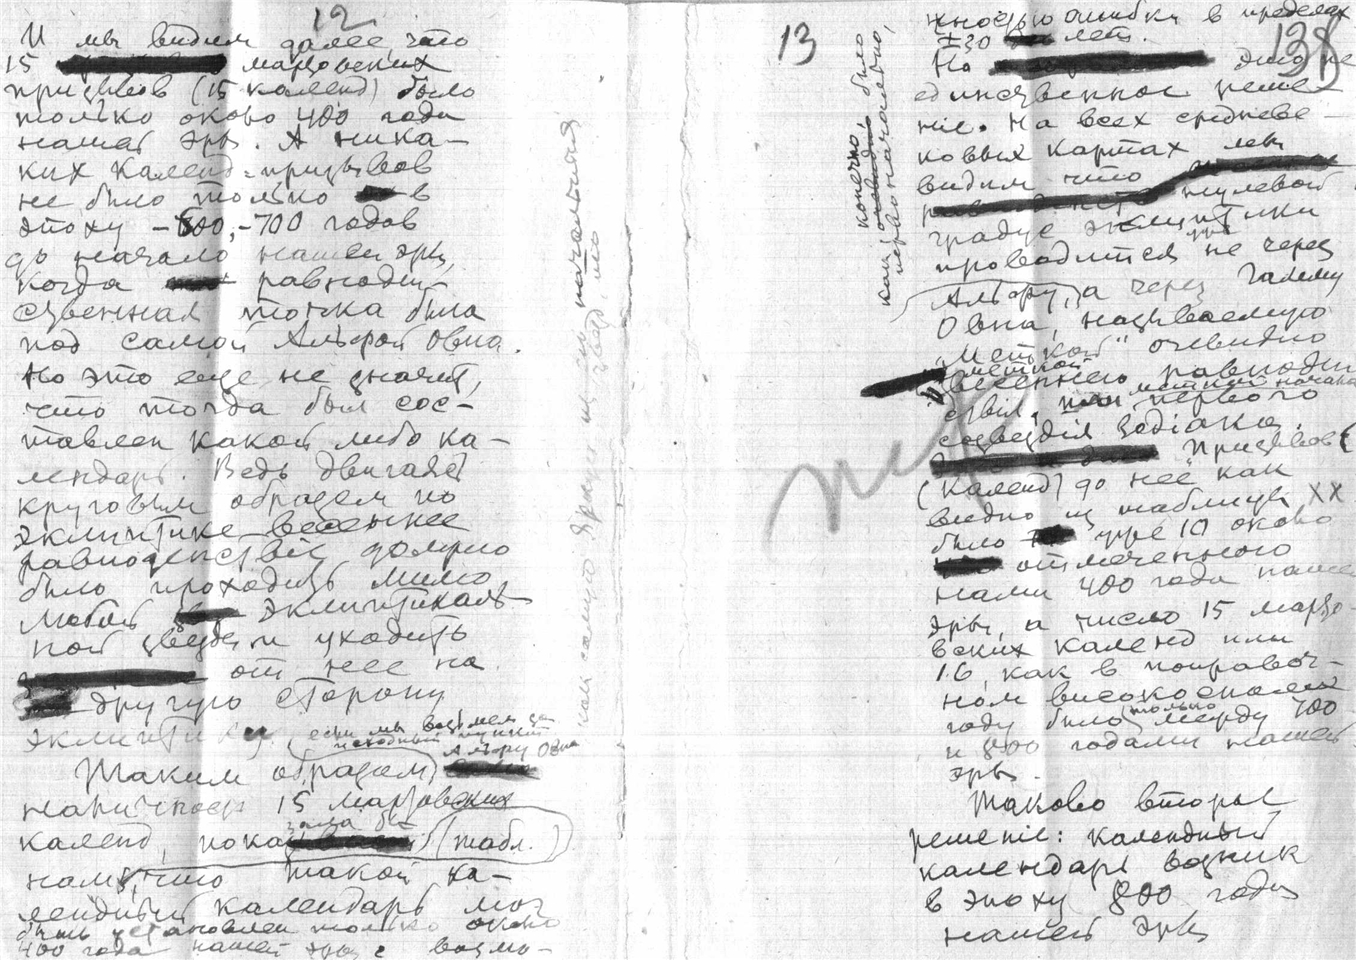 12
И мы видим далее, что
15 мартовских
призывов (15 календ) было
только около 400 года
нашей эры. А ника-
ких календ-призывов
не было только в
эпоху -800, -700 годов
до начало нашей эры,
когда равноден-
ственная точка была
под самой Альфой Овна.
Но это еще не значит,
что тогда был сос-
тавлен какой либо ка-
лендарь. Ведь двигаясь
круговым образом по
эклиптике весеннее
равноденствие должно
было проходить мимо
любой эклиптикаль-
ной звезды и уходить
от нее на
другую сторону
эклиптики.
(если мы возьмем за
исходный пункт
Альфу Овна
Таким образом)
наличность 15 мартовских
календ, показала бы (табл. )
нам, что такой ка-
лендный календарь мог
быть установлен только около
400 года нашей эры с возмо-
13
конечно, было
первоначально,
138
жностью ошибки в пределах
±30 лет.
Но это не
единственное реше-
ние. На всех средневе-
ковых картах мы
видим что
нулевой
градус эклиптики
проводится не через
Альфу, а через Гамму
Овна, называемую
очевидно
меткой
весеннего равноден-
ствия, или меткой начала
первого
созвездия Зодиака.
Призывов
(календ) до неё как
видно из таблицы XX
было уже 10 около
отмеченного
нами 400 года нашей
эры, а число 15 марто-
вских календ или
16, как в поправоч-
ном високосном
году было только между 700
и 800 годами нашей
эры.
Таково второе
решеніе: календный
календарь возник
в эпоху 800 года
нашей эры